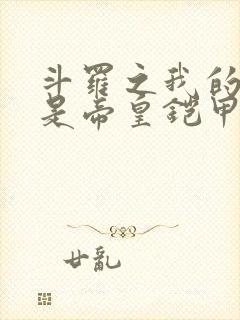 斗罗之我的
是帝皇铠甲
廿乱